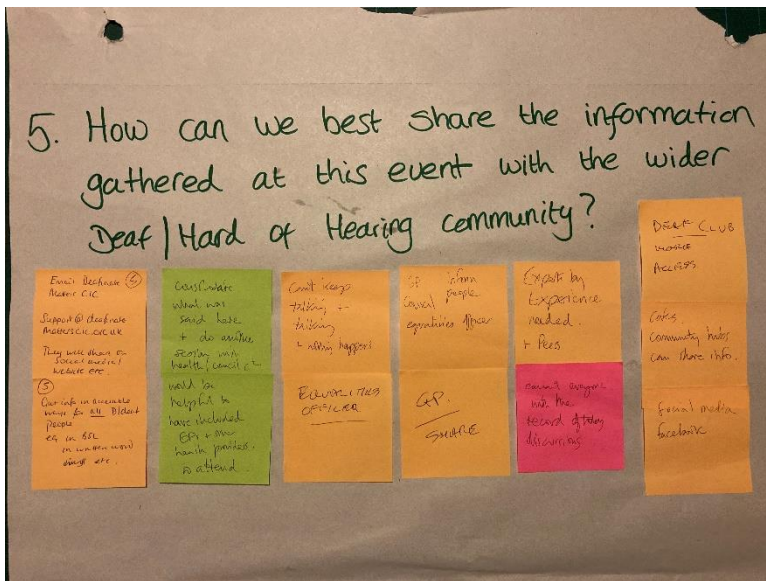 5. How can we best share the information
gathered at this event with the wider
Deaf | Hard of Hearing community?
Email Deafinate 5
Matters CIC
Support@deafinate
matterscic.org.uk
They will share on
social media
website etc.
5
Get info in accessible
ways for all
people
eg in BSL
in written word
etc.
what was
said here
+ do another
session with
health / council
would be
helpful to
have included
GPs +
health providers
to attend.
Can't keep
talking +
talking
nothing happens
EQUALITIES
OFFICER
GP inform
people
equalities officer
GP.
SHARE
Expert by
Experience
needed.
+ Fees
email everyone
with the
record of today
discussions
DEAF CLUB
ACCESS
Cafes
community hubs
can share info.
Social media
facebook